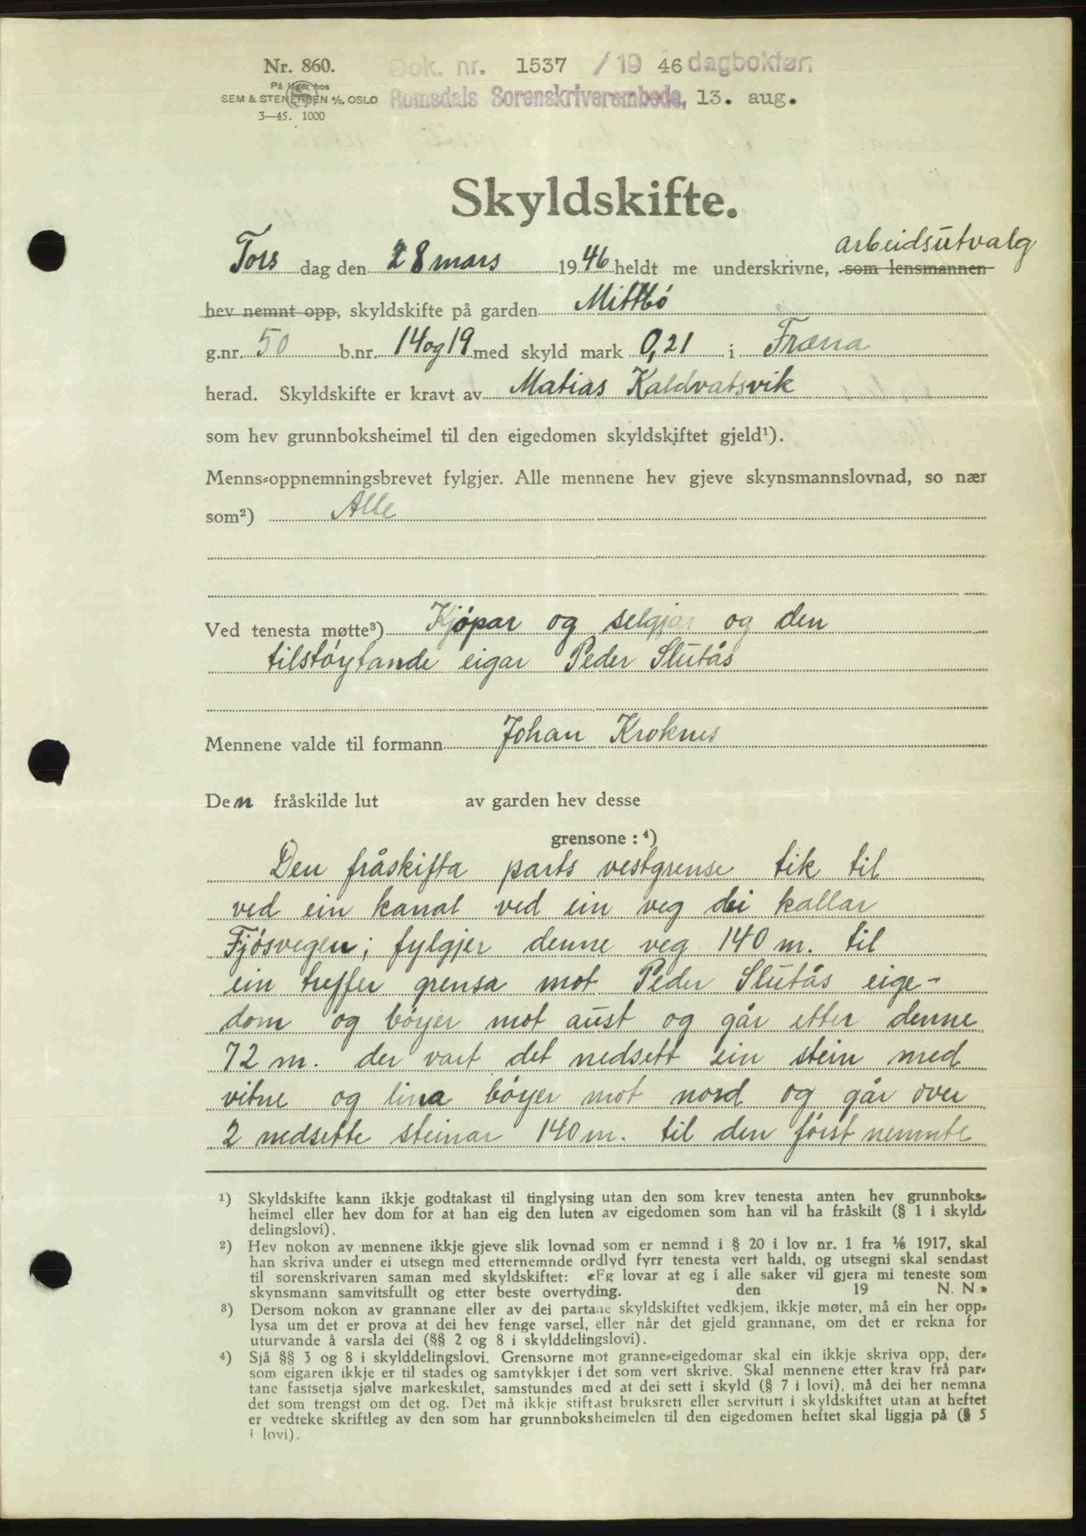 Nr. 860.
Dok. nr. 1537 / 19 46 dagbokført
På lager hos
SEM & STENERSEN A/S. OSLO
Romsdals Sorenskriverembede, 13. aug.
3—45. 1000
Skyldskifte.
arbeidsutvalg
Tors dag den 28 mars 1946 heldt me underskrivne, som lensmannen
hev nemnt opp, skyldskifte på garden Mittbö
g.nr. 50 b.nr. 14 og 19 med skyld mark 0,21 i Fræna
herad. Skyldskifte er kravt av Matias Kaldvatsvik
som hev grunnboksheimel til den eigedomen skyldskiftet gjeld¹).
Menns-oppnemningsbrevet fylgjer. Alle mennene hev gjeve skynsmannslovnad, so nær
som²) Alle
Ved tenesta møtte³) Kjöpar og selgjar og den
tilstöytande eigar Peder Slutås
Mennene valde til formann Johan Kroknes
Den fråskilde lut av garden hev desse
grensone : ⁴)
Den fråskifta parts vestgrense tik til
ved ein kanal ved ein veg dei kallar
Fjösvegen; fylgjer denne veg 140 m. til
ein treffer grensa mot Peder Slutås eige-
dom og böyer mot aust og går etter denne
72 m. der vart det nedsett ein stein med
vitne og lina böyer mot nord og går over
2 nedsette steinar 140 m. til den först nemnte
¹) Skyldskifte kann ikkje godtakast til tinglysing utan den som krev tenesta anten hev grunnboks-
heimel eller hev dom for at han eig den luten av eigedomen som han vil ha fråskilt (§ 1 i skyld-
delingslovi).
²) Hev nokon av mennene ikkje gjeve slik lovnad som er nemnd i § 20 i lov nr. 1 fra ⅙ 1917, skal
han skriva under ei utsegn med etternemnde ordlyd fyrr tenesta vert haldi, og utsegni skal sendast
til sorenskrivaren saman med skyldskiftet: «Eg lovar at eg i alle saker vil gjera mi teneste som
skynsmann samvitsfullt og etter beste overtyding. den 19 N. N.»
³) Dersom nokon av grannane eller av dei partane skyldskiftet vedkjem, ikkje møter, må ein her opp-
lysa um det er prova at dei hev fenge varsel, eller når det gjeld grannane, om det er rekna for
uturvande å varsla dei (§§ 2 og 8 i skylddelingslovi).
⁴) Sjå §§ 3 og 8 i skylddelingslovi. Grensorne mot granne-eigedomar skal ein ikkje skriva opp, der-
som eigaren ikkje er til stades og samtykkjer i det som vert skrive. Skal mennene etter krav frå par-
tane fastsetja sjølve markeskilet, samstundes med at dei sett i skyld (§ 7 i lovi), må dei her nemna
det som trengst om det og. Det må ikkje stiftast bruksrett eller servitutt i skyldskiftet utan at heftet
er vedteke skriftleg av den som har grunnboksheimelen til den eigedomen heftet skal liggja på (§ 5
i lovi).